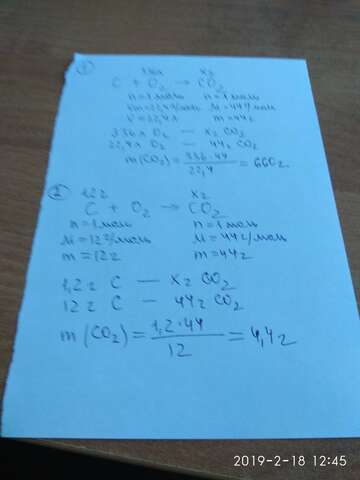 ①
336л x г
C + O₂ → CO₂
n=1моль n=1моль
Vm=22,4л/моль M=44г/моль
V=22,4л m=44г
336л O₂ — x г CO₂
22,4л O₂ — 44г CO₂
m(CO₂) = 336·44 / 22,4 = 660г
②
1,2г x г
C + O₂ → CO₂
n=1моль n=1моль
M=12г/моль M=44г/моль
m=12г m=44г
1,2г C — x г CO₂
12г C — 44г CO₂
m(CO₂) = 1,2·44 / 12 = 4,4г
2019-2-18 12:45